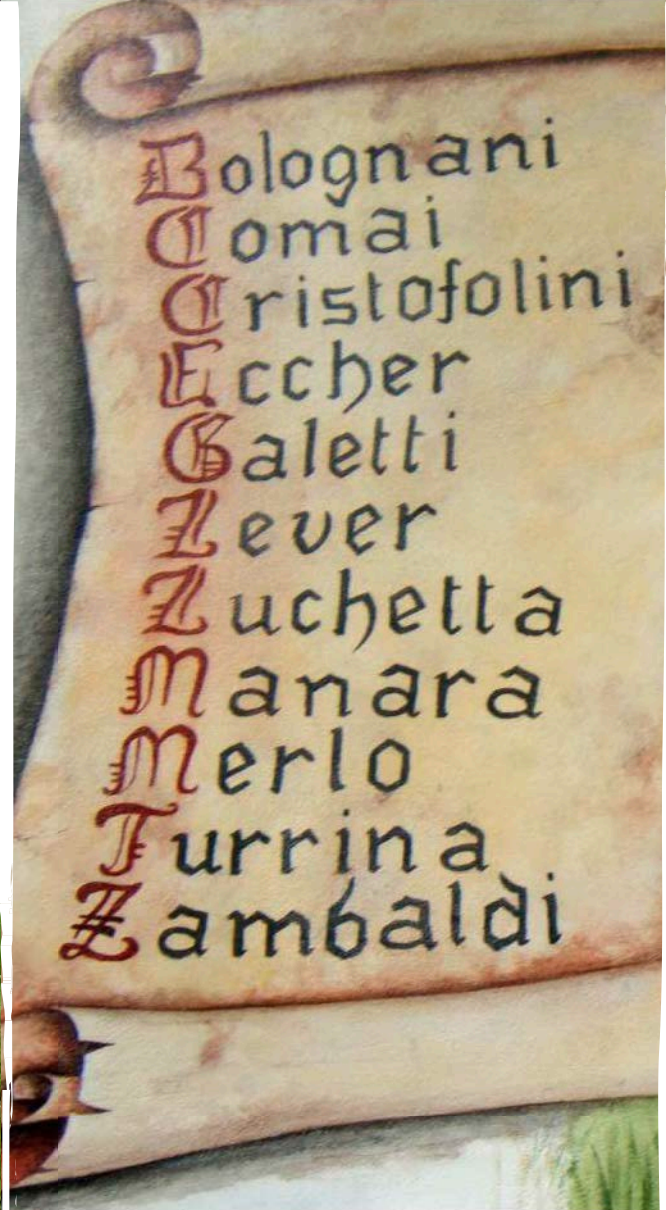 Bolognani
Comai
Cristofolini
Eccher
Galetti
Lever
Luchetta
Manara
Merlo
Turrina
Zambaldi